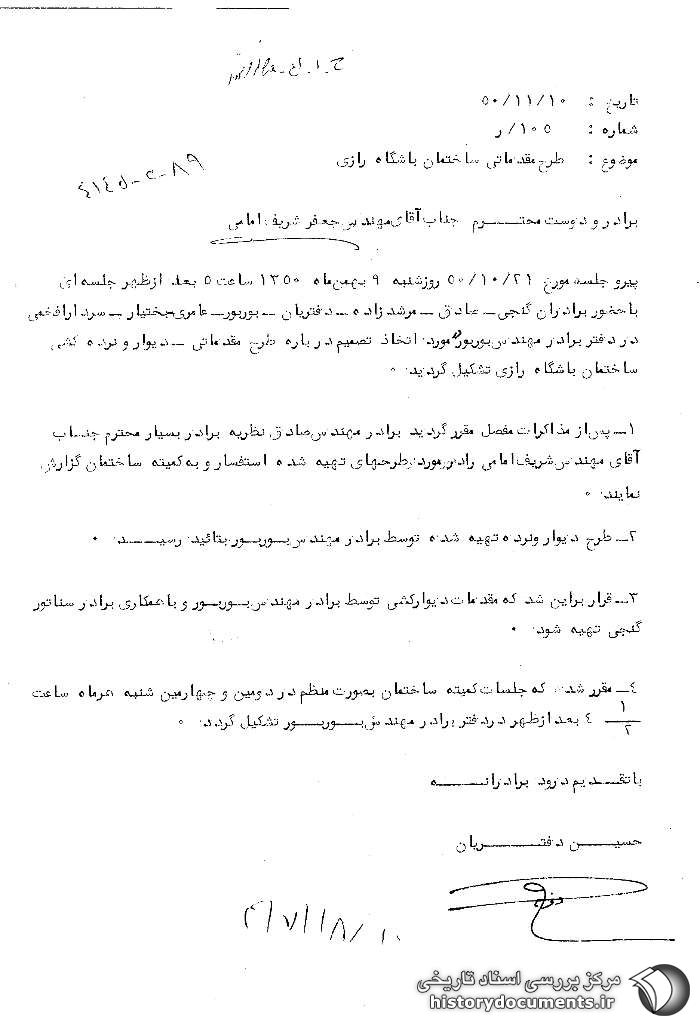 تاریخ : ۵۰/۱۱/۱۰
شماره : ۱۰۵/ر
موضوع : طرح مقدماتی ساختمان باشگاه رازی
۴۱۴۵-۲-۸۹
برادر و دوست محترم جناب آقای مهندس جعفر شریف امامی
پیرو جلسه مورخ ۵۰/۱۰/۲۱ روز شنبه ۹ بهمن ماه ۱۳۵۰ ساعت ۵ بعد از ظهر جلسه ای
با حضور برادران گنجی ـ صادق ـ مرشد زاده ـ دفتریان ـ بوربور ـ عامری بختیار ـ سردار افخمی
در دفتر برادر مهندس بوربور مورد اتخاذ تصمیم درباره طرح مقدماتی ـ دیوار و نرده کشی
ساختمان باشگاه رازی تشکیل گردید.
۱ـ پس از مذاکرات مفصل مقرر گردید برادر مهندس صادق نظریه برادر بسیار محترم جناب
آقای مهندس شریف امامی را در مورد طرحهای تهیه شده استفسار و به کمیته ساختمان گزارش
نمایند.
۲ـ طرح دیوار و نرده تهیه شده توسط برادر مهندس بوربور بتائید رسید.
۳ـ قرار براین شد که مقدمات دیوارکشی توسط برادر مهندس بوربور و با همکاری برادر سناتور
گنجی تهیه شود.
۴ـ مقرر شد که جلسات کمیته ساختمان بصورت منظم در دومین و چهارمین شنبه هرماه ساعت
۱/۲ ۴ بعد از ظهر در دفتر برادر مهندس بوربور تشکیل گردد.
با تقدیم درود برادرانه
حسین دفتریان
مرکز بررسی اسناد تاریخی
historydocuments.ir